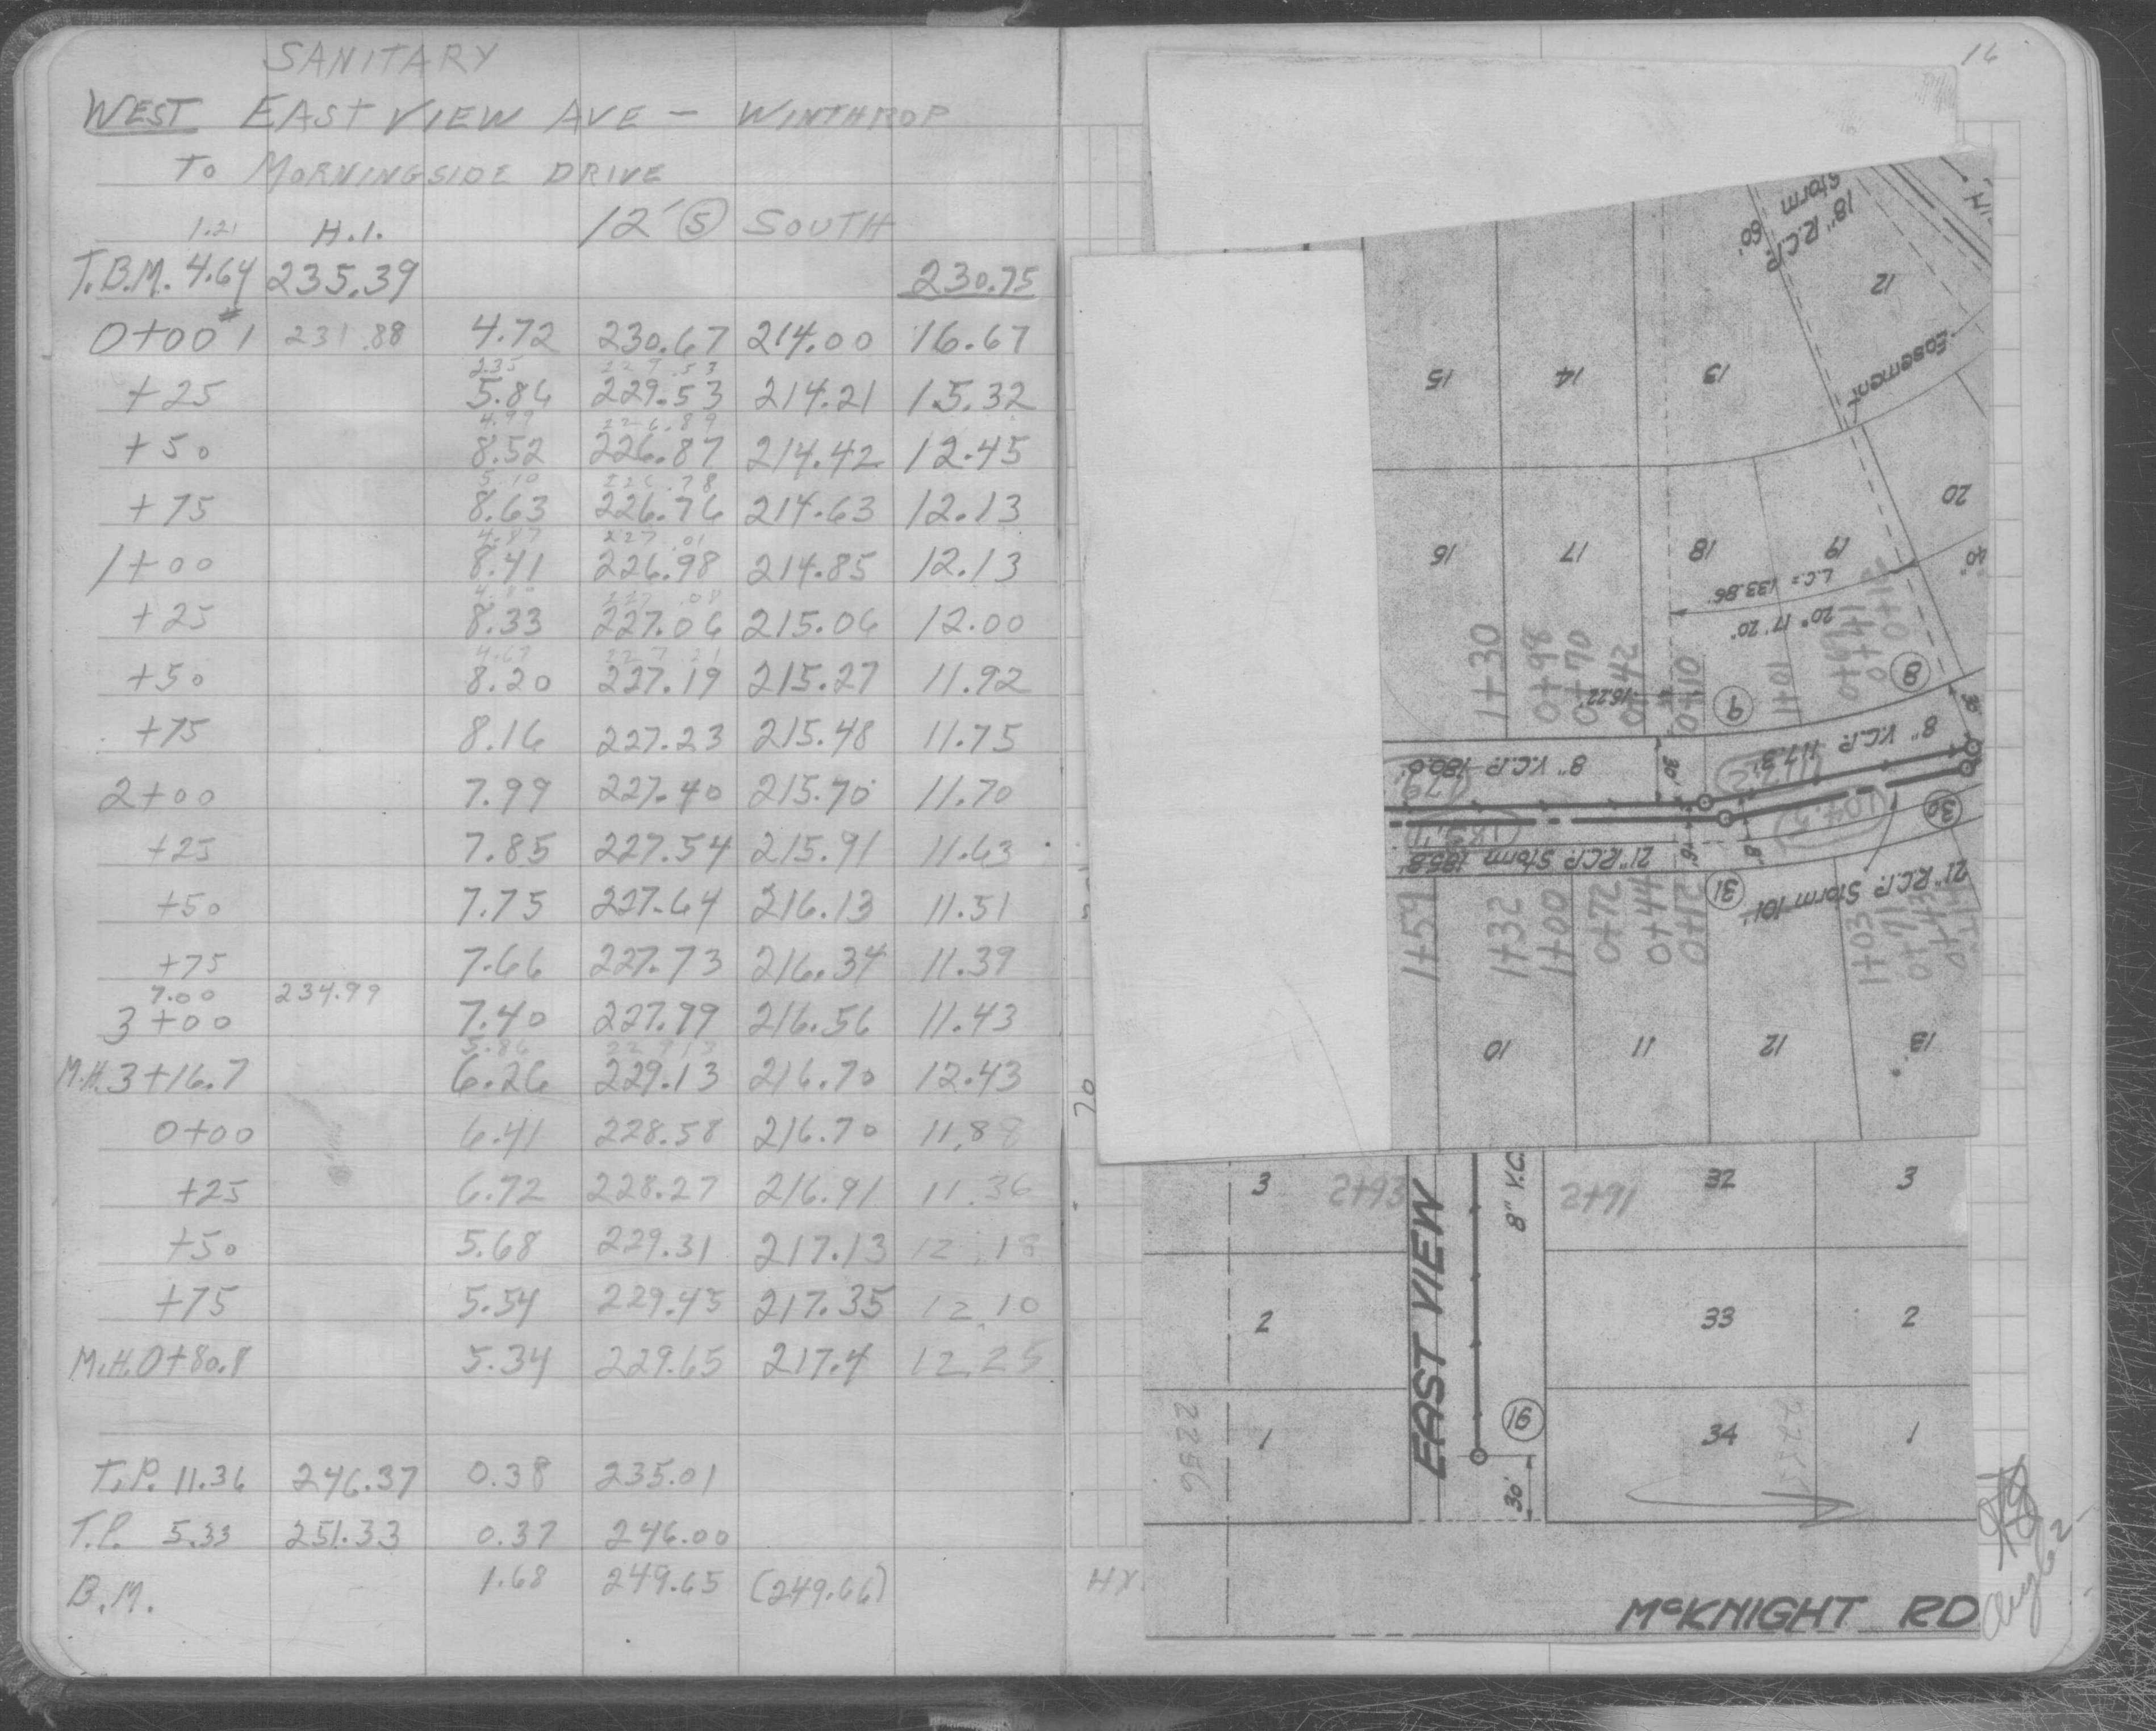 SANITARY
WEST EAST VIEW AVE - WINTHROP
TO MORNINGSIDE DRIVE
1.21 H.I. 12' S SOUTH
T.B.M. 4.64 235.39 230.75
0+00 #1 231.88 4.72 230.67 214.00 16.67
235 227.53
+25 5.86 229.53 214.21 15.32
4.99 226.89
+50 8.52 226.87 214.42 12.45
5.10 226.78
+75 8.63 226.76 214.63 12.13
4.87 227.01
1+00 8.41 226.98 214.85 12.13
4.80 227.08
+25 8.33 227.06 215.06 12.00
4.67 227.21
+50 8.20 227.19 215.27 11.92
+75 8.16 227.23 215.48 11.75
2+00 7.99 227.40 215.70 11.70
+25 7.85 227.54 215.91 11.63
+50 7.75 227.64 216.13 11.51
+75 7.66 227.73 216.34 11.39
7.00 234.99
3+00 7.40 227.99 216.56 11.43
5.86 229.13
M.H. 3+16.7 6.26 229.13 216.70 12.43
0+00 6.41 228.58 216.70 11.88
+25 6.72 228.27 216.91 11.36
+50 5.68 229.31 217.13 12.18
+75 5.54 229.45 217.35 12.10
M.H. 0+80.8 5.34 229.65 217.4 12.25
T.P. 11.36 246.37 0.38 235.01
T.P. 5.33 251.33 0.37 246.00
B.M. 1.68 249.65 (249.66)
16
18" R.C.P. Storm
60'
12
Easement
15 14 13
20
16 17 18 19
40'
L.C. = 133.86'
20° 17' 20"
1+30 0+98 0+70 0+42 0+10 1+01 0+69 0+41
16.22'
9 8
8" V.C.P. 180.0' 30' 8" V.C.P. 117.3'
179 117.2
104.5 30
21" R.C.P. Storm 185.8' 16' 8'
31
21" R.C.P. Storm 101'
1+59 1+32 1+00 0+72 0+44 0+12 1+03 0+71 0+43
10 11 12 13
70
3 2+93 8" V.C. 2+91 32 3
EAST VIEW
2 33 2
16
2256 1 34 1
30'
HY
McKNIGHT RD
Aug 62